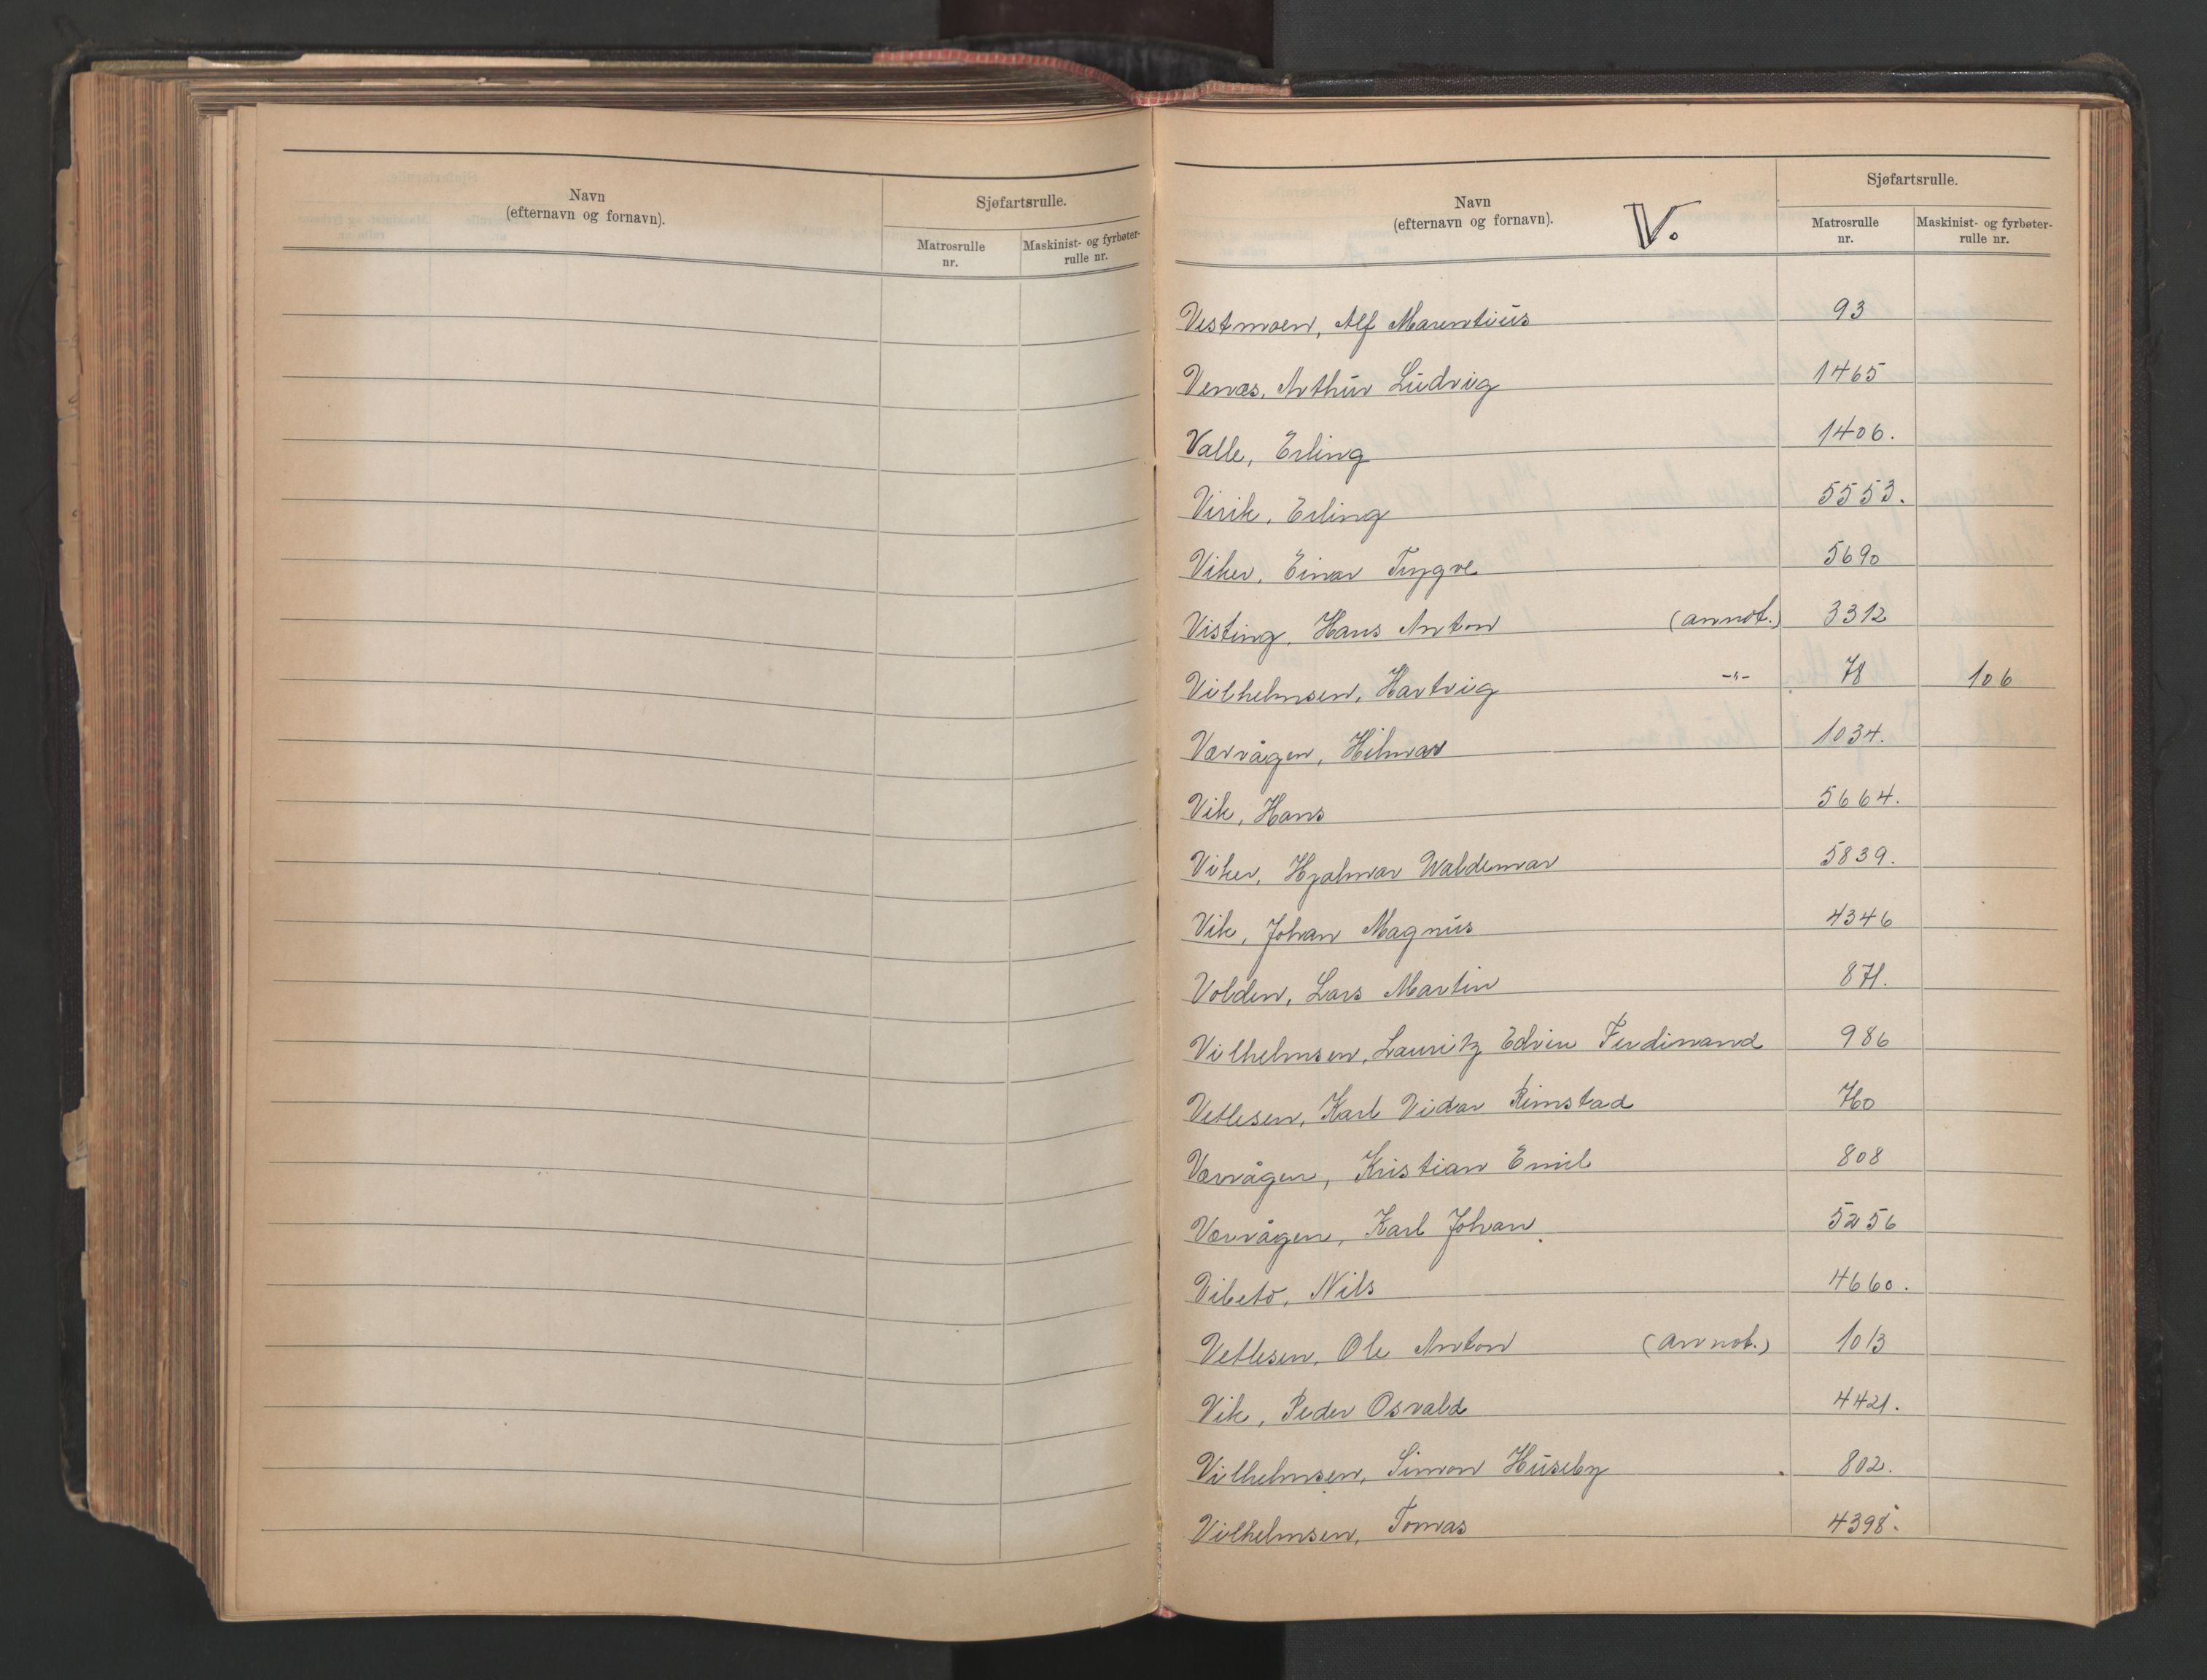 Navn
(efternavn og fornavn).
Sjøfartsrulle.
Matrosrulle
nr.
Maskinist- og fyrbøter-
rulle nr.
Navn
(efternavn og fornavn).
V.
Sjøfartsrulle.
Matrosrulle
nr.
Maskinist- og fyrbøter-
rulle nr.
Vestmoen, Alf Marentius 93
Venæs, Arthur Ludvig 1465
Valle, Erling 1406.
Virik, Erling 5553.
Viker, Einar Trygve 5690
Visting, Hans Anton (annot.) 3312
Vilhelmsen, Hartvig -"- 78 106
Værvågen, Hilmar 1034.
Vik, Hans 5664.
Viker, Hjalmar Waldemar 5839.
Vik, Johan Magnus 4346
Volden, Lars Martin 871.
Vilhelmsen, Lauritz Edvin Ferdinand 986
Vetlesen, Karl Vidar Rimstad 760
Værvågen, Kristian Emil 808
Værvågen, Karl Johan. 5256
Vibeto, Nils 4660.
Vetlesen, Ole Anton (annot.) 1013
Vik, Peder Osvald 4421.
Vilhelmsen, Simon Huseby 802.
Vilhelmsen, Tomas 4398.